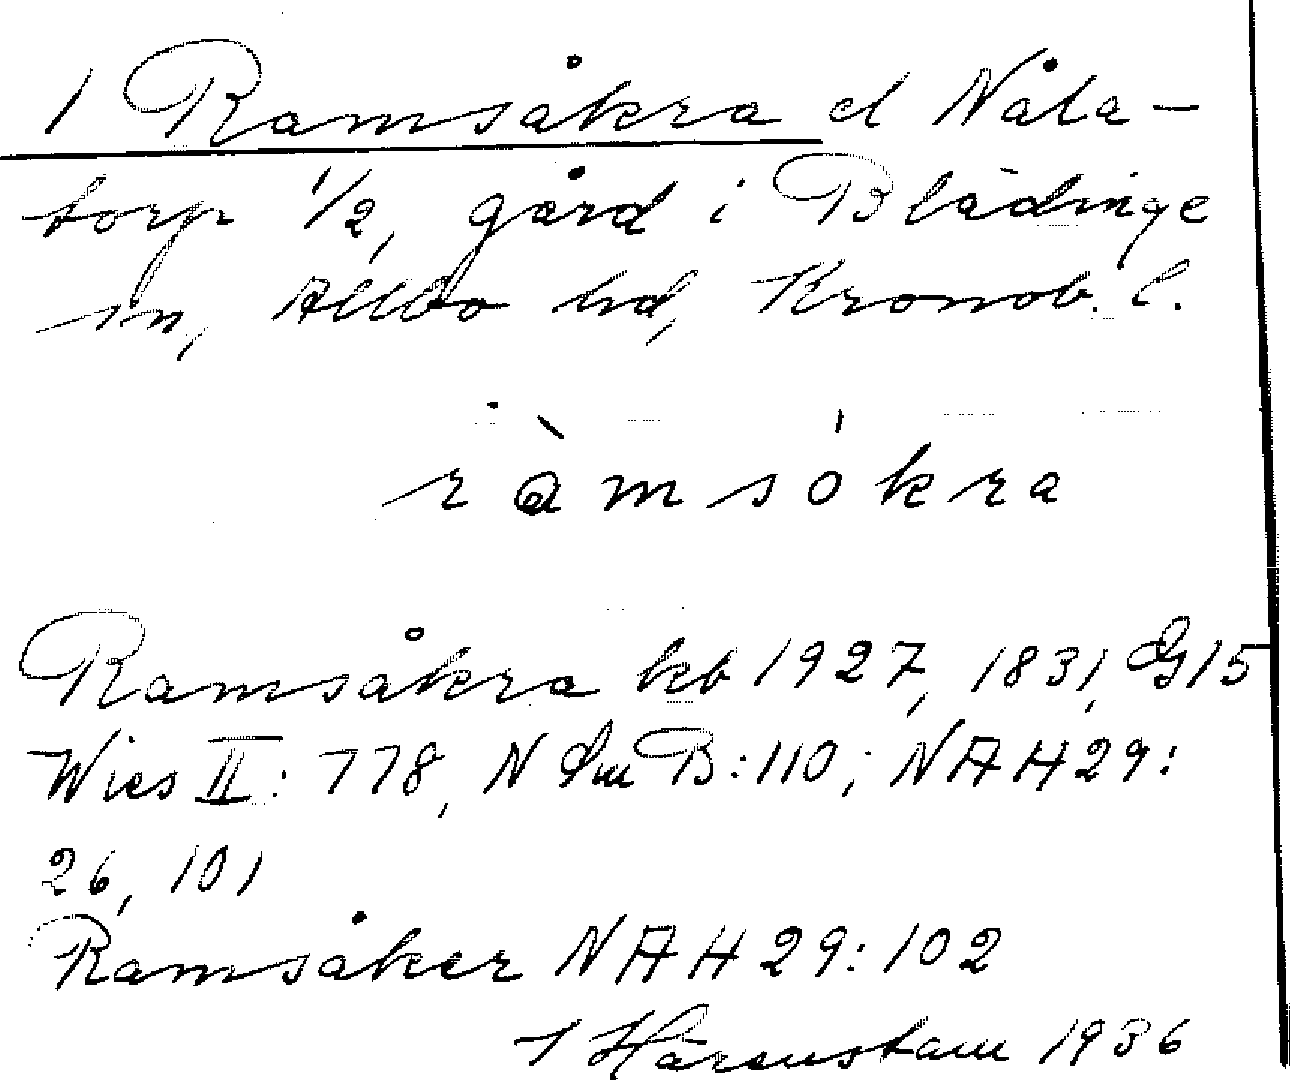 1 Ramsåkra el Nåla-
torp 1/2, gård i Blädinge
sn, Allbo hd, Kronob. l.
ràmsòkra
Ramsåkra kb 1927, 1831, G15
Wies II: 778, N Sm B:110; NAH29:
26, 101
Ramsåker NAH29:102
Härenstam 1936